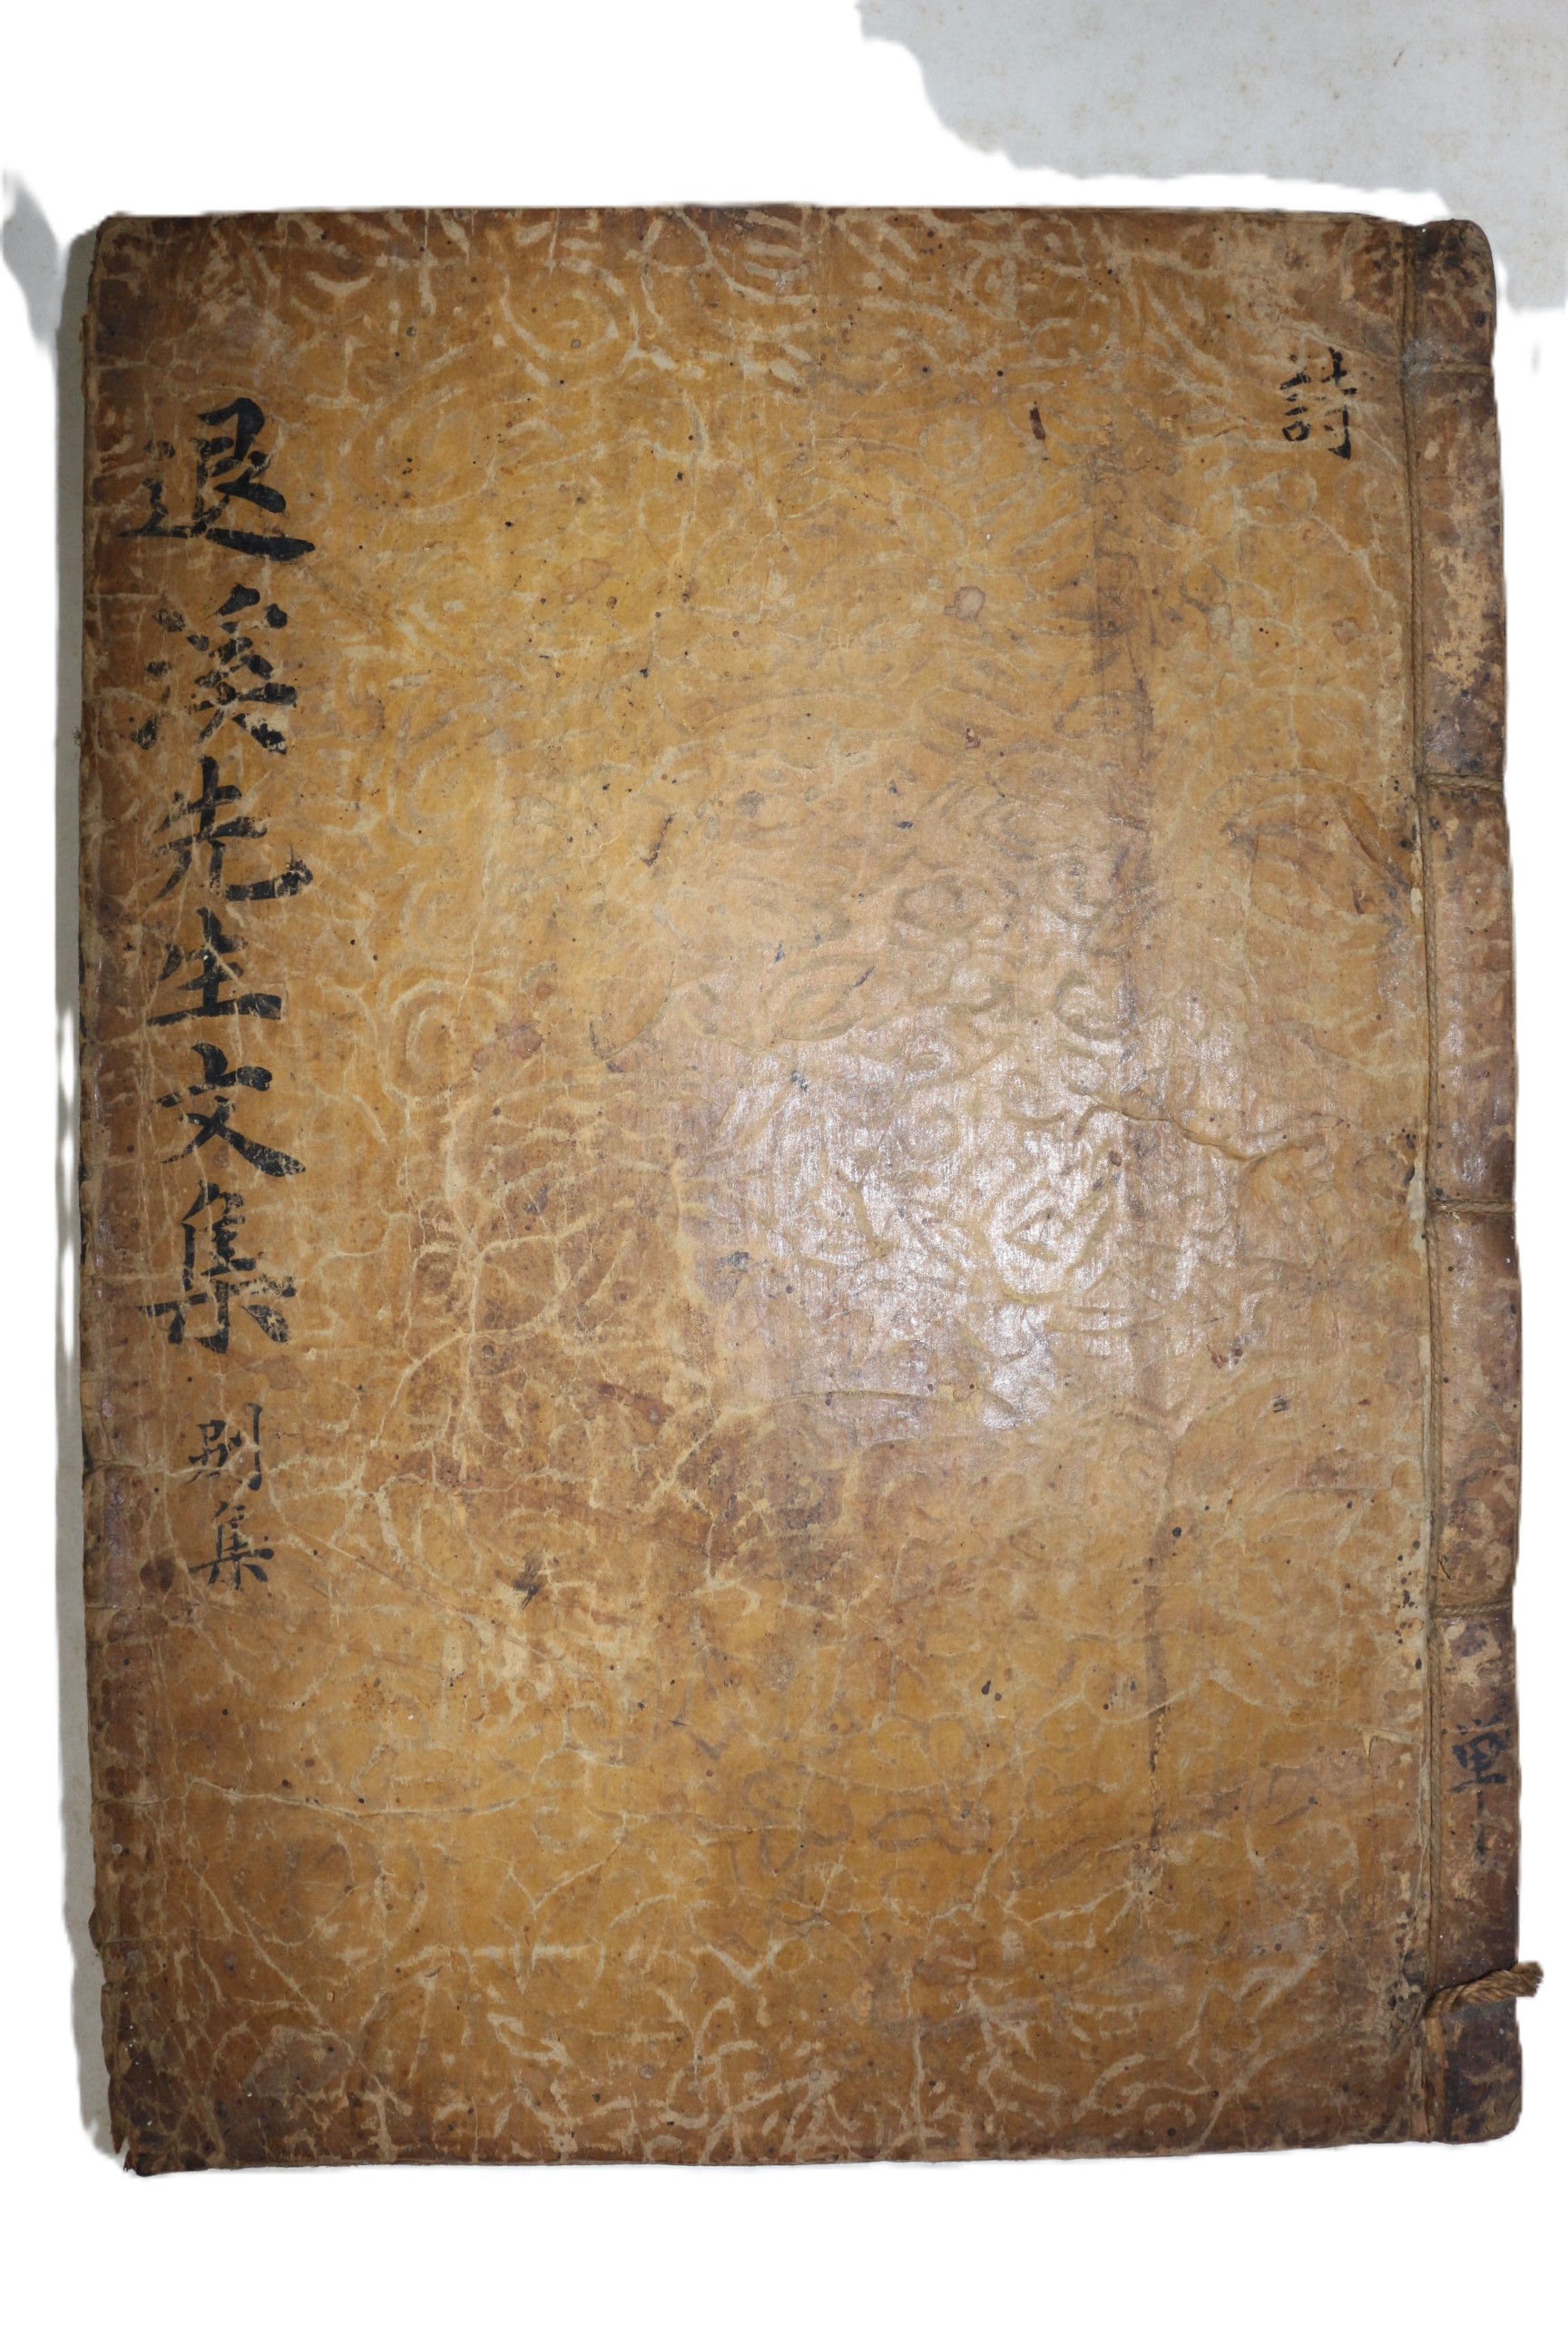 詩
退溪先生文集 別集
單